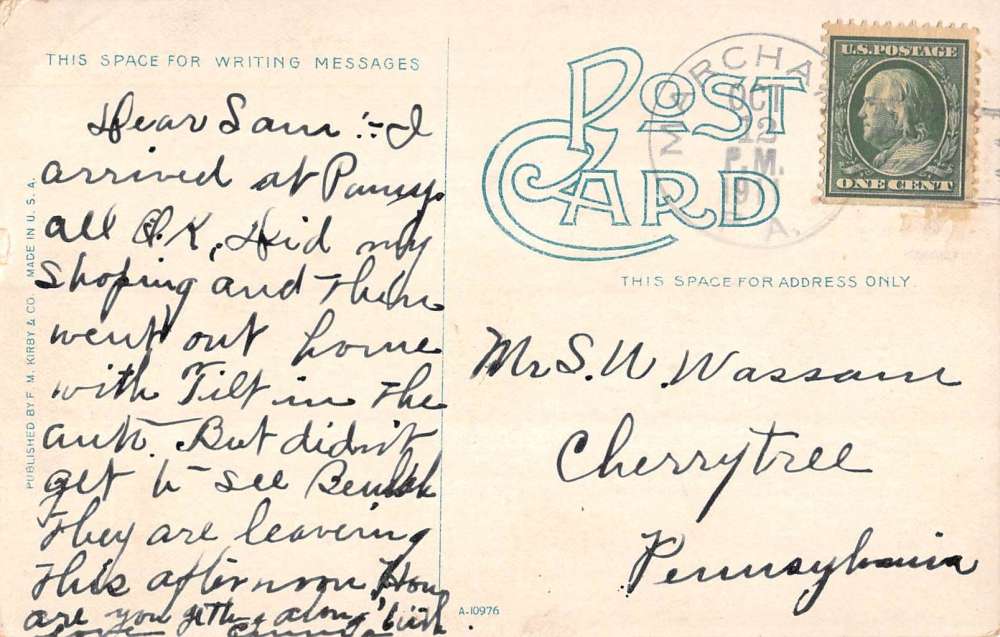 THIS SPACE FOR WRITING MESSAGES
Dear Sam :- I
arrived at Punxsy.
all O.K, Did my
Shoping and then
went out home
with Tilt in the
auto. But didn't
get to see Beulah
They are leaving
this afternoon How
are you getting along with
love
PUBLISHED BY F. M. KIRBY & CO. MADE IN U. S. A.
POST
CARD
MARCHA
OCT
12
P.M.
19
A.
U.S. POSTAGE
ONE CENT
THIS SPACE FOR ADDRESS ONLY.
Mr S. W. Wassam
Cherrytree
Pennsylvania
A-10976